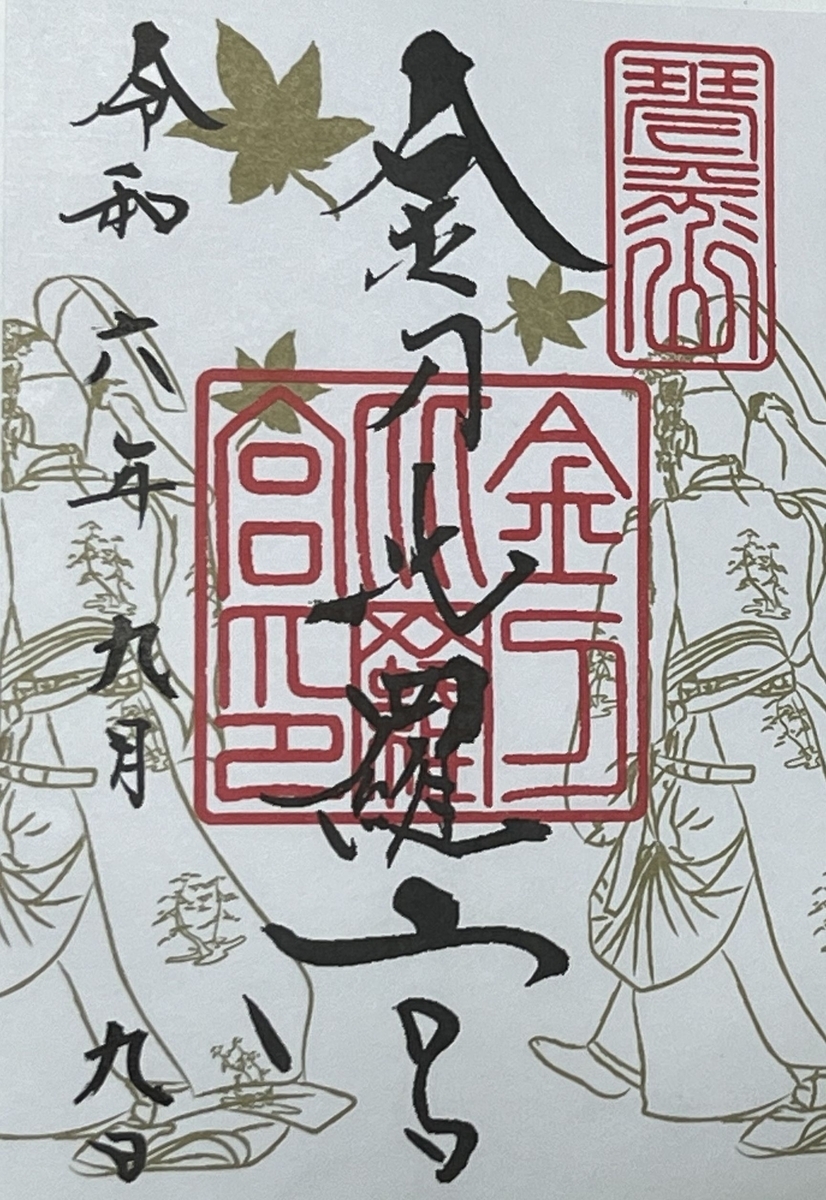 琴平山
金刀比羅宮
金刀
比羅
宮印
令和六年九月九日